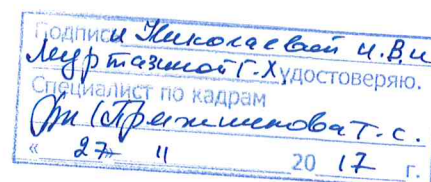 Подписи Николаевой И.В. и
Муртазиной Г.Х. удостоверяю.
Специалист по кадрам
Т.С.
« 27 » 11 20 17 г.